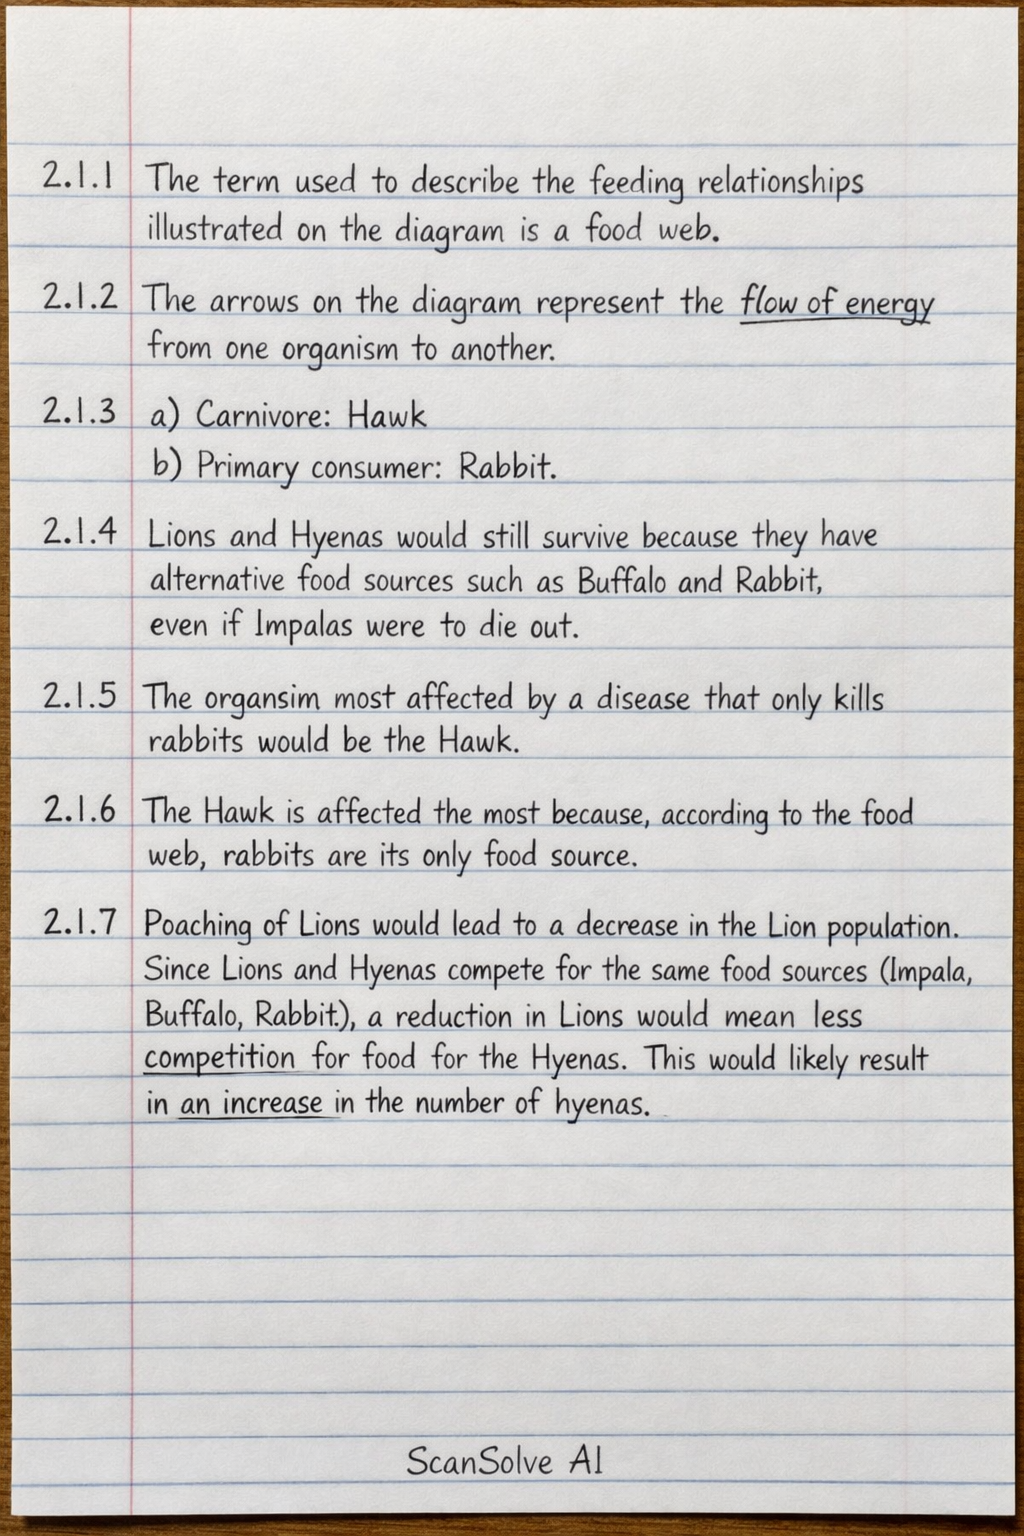 2.1.1 The term used to describe the feeding relationships
illustrated on the diagram is a food web.
2.1.2 The arrows on the diagram represent the flow of energy
from one organism to another.
2.1.3 a) Carnivore: Hawk
b) Primary consumer: Rabbit.
2.1.4 Lions and Hyenas would still survive because they have
alternative food sources such as Buffalo and Rabbit,
even if Impalas were to die out.
2.1.5 The organsim most affected by a disease that only kills
rabbits would be the Hawk.
2.1.6 The Hawk is affected the most because, according to the food
web, rabbits are its only food source.
2.1.7 Poaching of Lions would lead to a decrease in the Lion population.
Since Lions and Hyenas compete for the same food sources (Impala,
Buffalo, Rabbit.), a reduction in Lions would mean less
competition for food for the Hyenas. This would likely result
in an increase in the number of hyenas.
ScanSolve AI